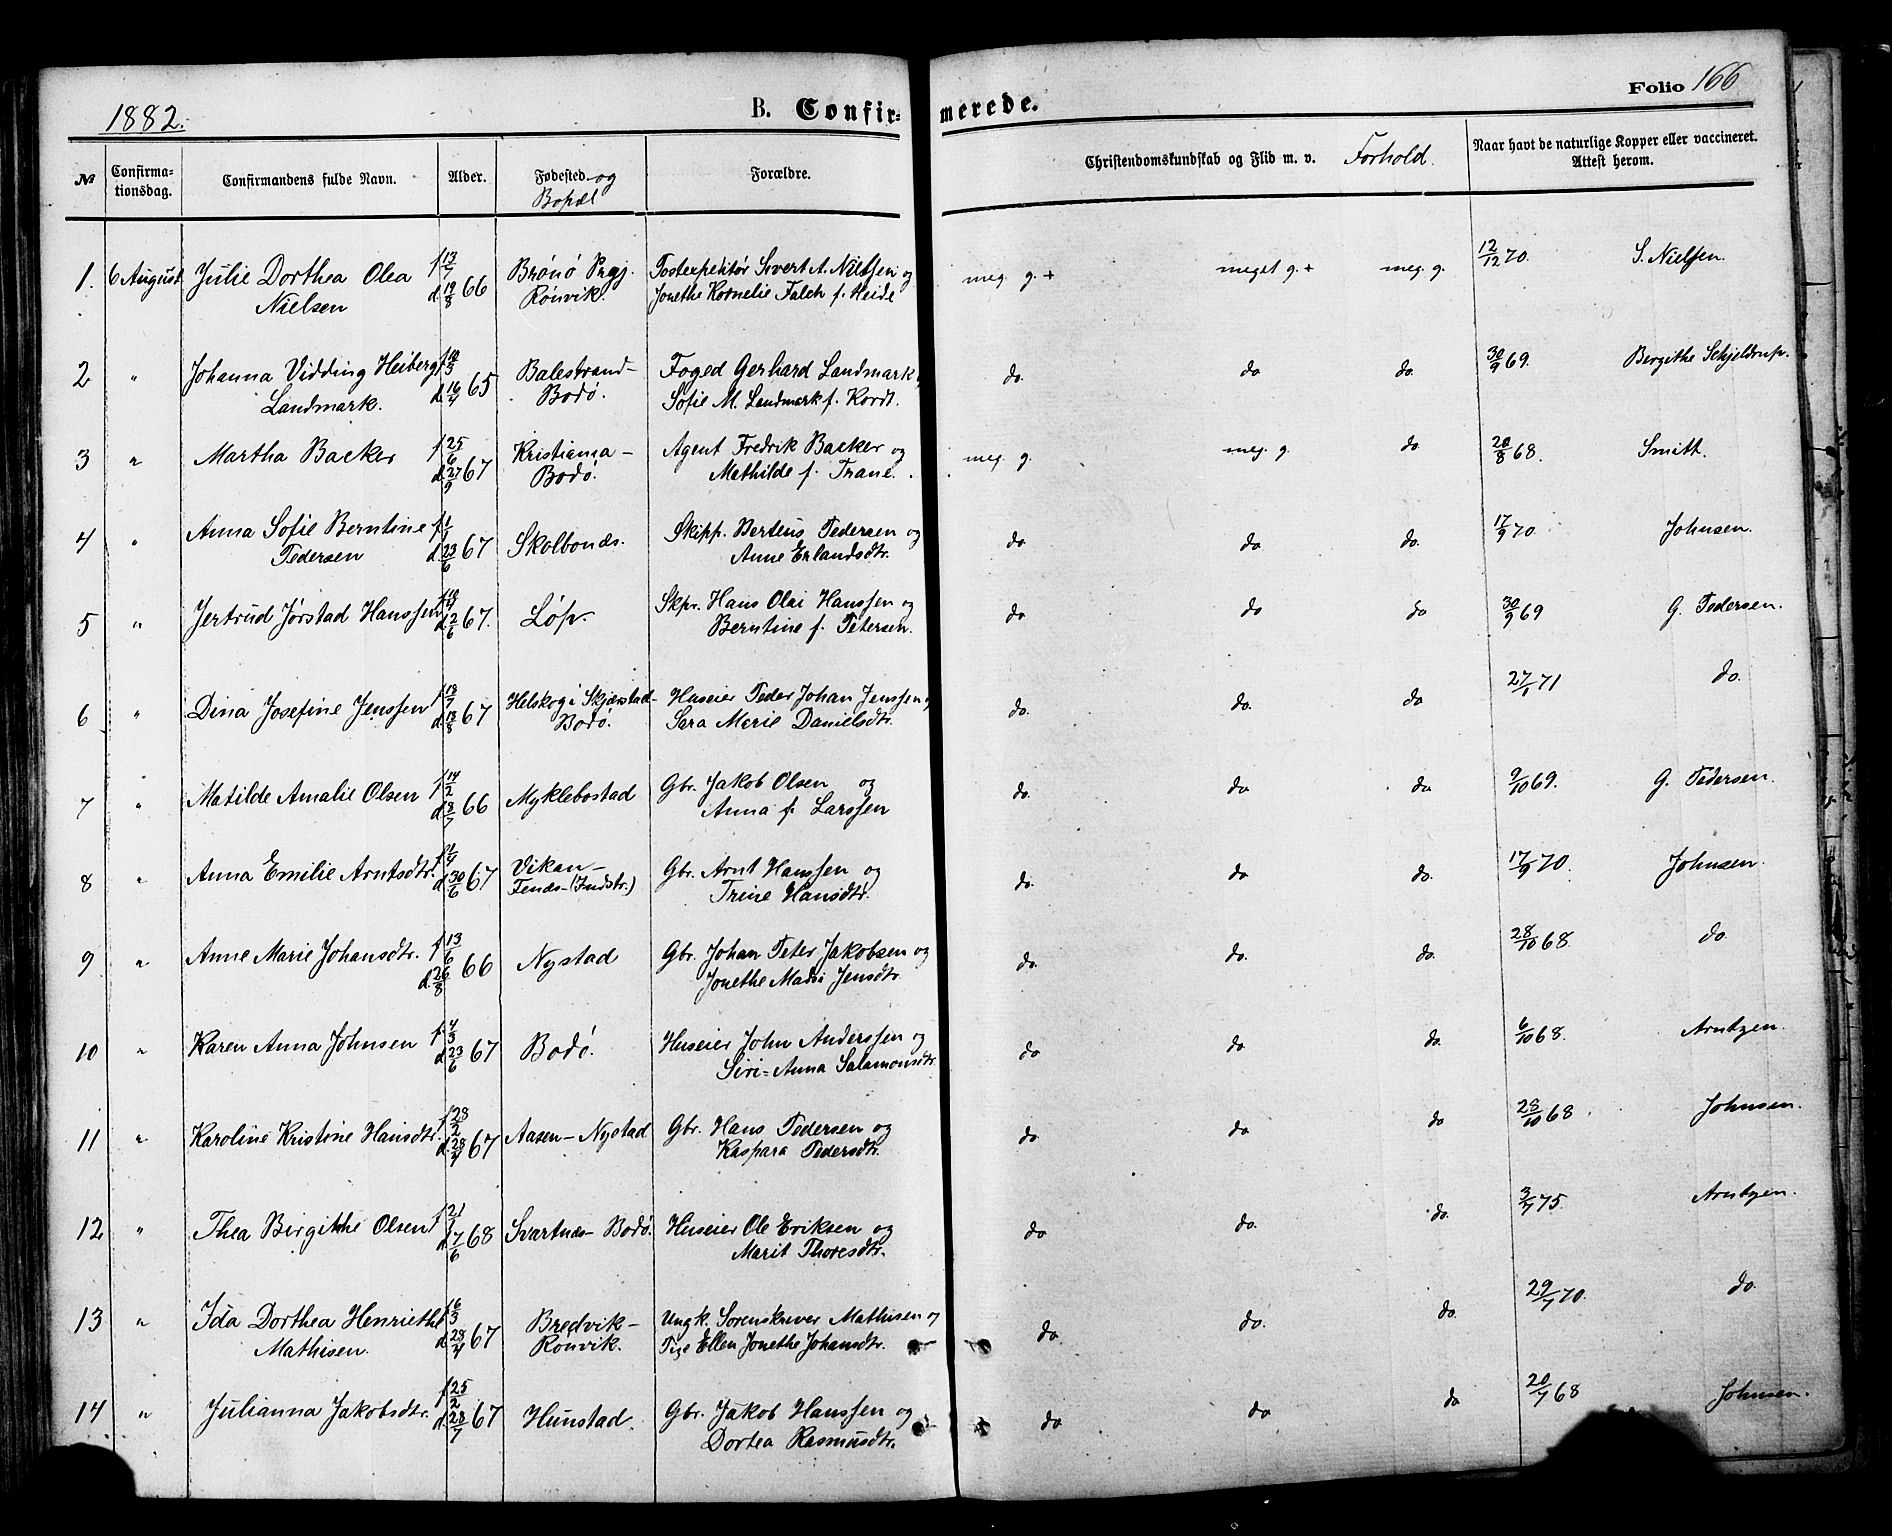 1882.
B. Confirmerede.
Folio 166
№ Confirmationsdag. Confirmandens fulde Navn. Alder. Fødested og Bopæl Forældre. Christendomskundskab og Flid m. v. Forhold. Naar havt de naturlige Kopper eller vaccineret. Attest herom.
1. 6 August Julie Dorthea Olea f 13/7 Brønø Prgj. Postexpeditør Sivert A. Nielsen og meg. g. + meget g. + meg. g. 12/12 70. S. Nielsen.
Nielsen d. 19/8 66 Rønvik. Jonethe Kornelie Falch f. Heide
2 " Johanna Vidding Heiberg Balestrand- Foged Gerhard Landmark do. do do. 30/9 69. Birgithe Schjeldrup.
Landmark. d. 16/4 65 Bodø. Sofie M. Landmark f. Kordt.
3 " Martha Backer f 25/6 Kristiania- Agent Fredrik Backer og meg. g. meg. g. do 20/8 68. Smith.
d. 27/9 67 Bodø. Mathilde f. Trane.
4 " Anna Sofie Berntine f 1/1 Skipp. Berteus Pedersen og do do do. 17/9 70. Johnsen.
Pedersen d. 23/6 67 Skolbonæs. Anne Erlandsdtr.
5 " Jertrud Jørstad Hanssen Løp. Skpr. Hans Olai Hanssen og do do do 30/9 69 G. Pedersen.
d. 2/6 67. Berntine f. Petersen.
6 " Dina Josefine Jenssen f 18/7 Helskog i Skjærstad- Huseier Peder Johan Jenssen og do. do. do 27/1 71 do.
d. 18/8 67 Bodø. Sara Marie Danielsdtr.
7 " Matilde Amalie Olsen f 14/2 Myklebostad Gbr. Jakob Olsen og do. do do 9/10 69. G. Pedersen.
d. 8/7 66 Anna f. Larssen
8 " Anna Emilie Arntsdtr. Vikan- Gbr. Arnt Hanssen og do. do do. 17/9 70. Johnsen.
d. 30/6 67 Fenæs-(Indstr.) Trine Hansdtr.
9 " Anne Marie Johansdtr. f 13/6 Nystad Gbr. Johan Peter Jakobsen og do. do. do. 28/10 68. do.
d. 26/8 66 Jonethe Marie Jensdtr.
10 " Karen Anna Johnsen f. 4/3 Bodø. Huseier John Anderssen og do do. do. 6/10 68. Arntzen.
d. 23/6 67 Siri-Anna Salamonsdtr.
11 " Karoline Kristine Hansdtr. f 28/2 Aasen-Nystad Gbr. Hans Pedersen og do do do 28/10 68 Johnsen.
d. 28/4 67 Kaspara Pedersdtr.
12 " Thea Birgitthe Olsen f 21/1 Svartnæs-Bodø. Huseier Ole Eriksen og do do. do. 3/7 75. Arntzen.
d. 7/6 68 Marit Thoresdtr.
13 " Ida Dorthea Henriethe f 16/3 Bredvik- Ungk. Sorenskriver Mathisen og do. do. do. 29/7 70. do.
Mathisen. d. 28/4 67 Rønvik. Pige Ellen Jonethe Johansdtr.
14 " Julianna Jakobsdtr. f 25/2 Hunstad. Gbr. Jakob Hanssen og do do do 20/7 68 Johnsen.
d. 28/7 67 Dortea Rasmusdtr.